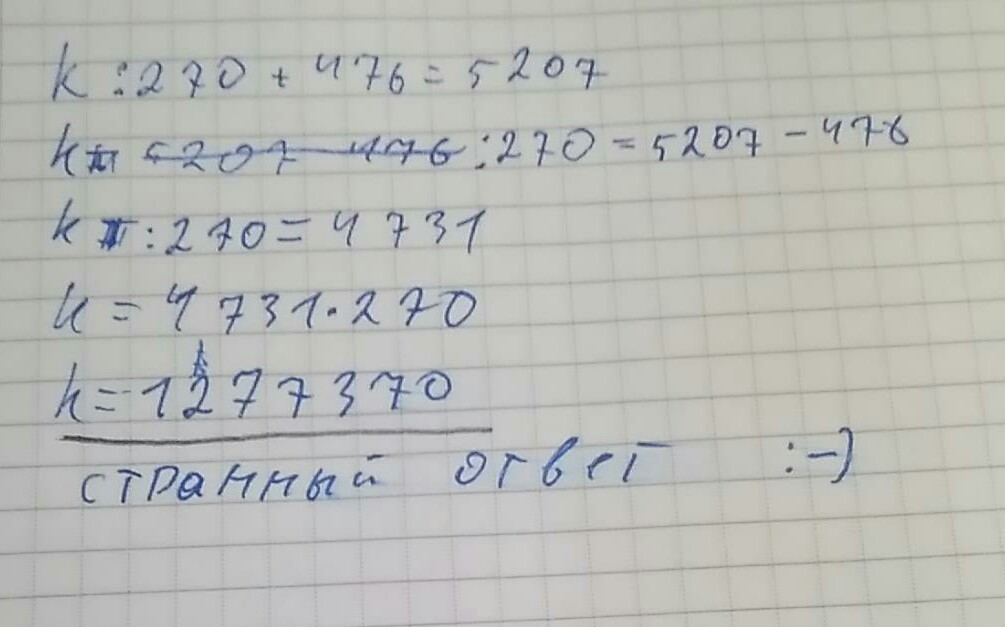 k : 270 + 476 = 5207
k : 270 = 5207 - 476
k : 270 = 4731
k = 4731 · 270
k = 1277370
странный ответ :-)